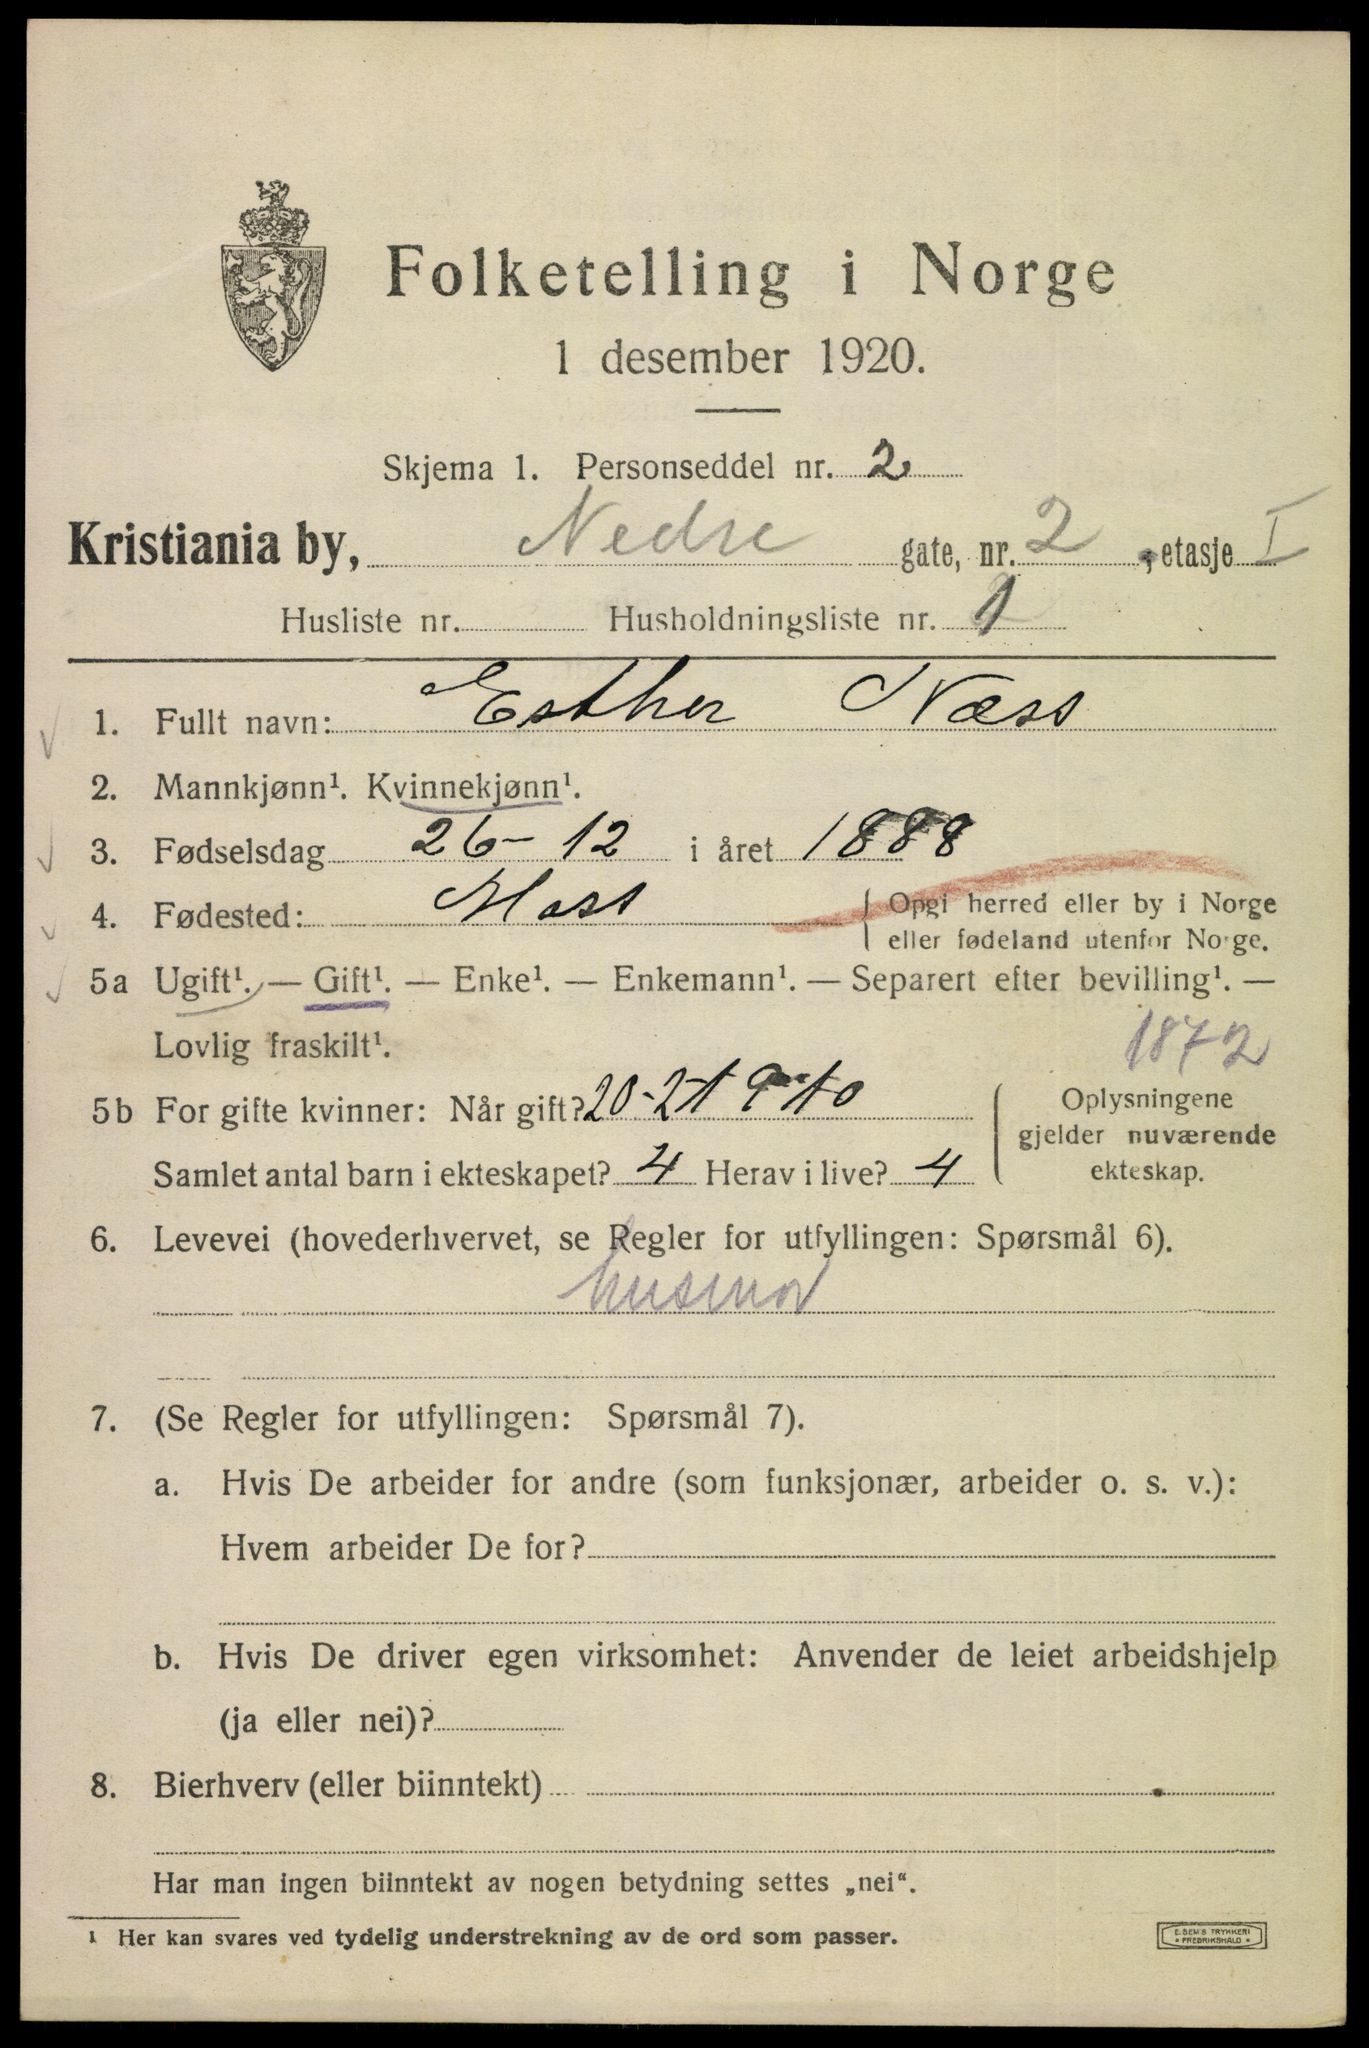 Folketelling i Norge
1 desember 1920.
Skjema 1. Personseddel nr. 2
Kristiania by, Nedre gate, nr. 2, etasje I
Husliste nr. Husholdningsliste nr. 1
1. Fullt navn: Esther Næss
2. Mannkjønn¹. Kvinnekjønn¹.
3. Fødselsdag 26-12 i året 1888
4. Fødested: Moss { Opgi herred eller by i Norge
eller fødeland utenfor Norge.
5a Ugift¹. — Gift¹. — Enke¹. — Enkemann¹. — Separert efter bevilling¹. —
Lovlig fraskilt¹. 1872
5b For gifte kvinner: Når gift? 20-2-1910
Samlet antal barn i ekteskapet? 4 Herav i live? 4
{ Oplysningene
gjelder nuværende
ekteskap.
6. Levevei (hovederhvervet, se Regler for utfyllingen: Spørsmål 6).
husmor
7. (Se Regler for utfyllingen: Spørsmål 7).
a. Hvis De arbeider for andre (som funksjonær, arbeider o. s. v.):
Hvem arbeider De for?
b. Hvis De driver egen virksomhet: Anvender de leiet arbeidshjelp
(ja eller nei)?
8. Bierhverv (eller biinntekt)
Har man ingen biinntekt av nogen betydning settes „nei“.
¹ Her kan svares ved tydelig understrekning av de ord som passer.
E. SEM'S TRYKKERI
• FREDRIKSHALD •